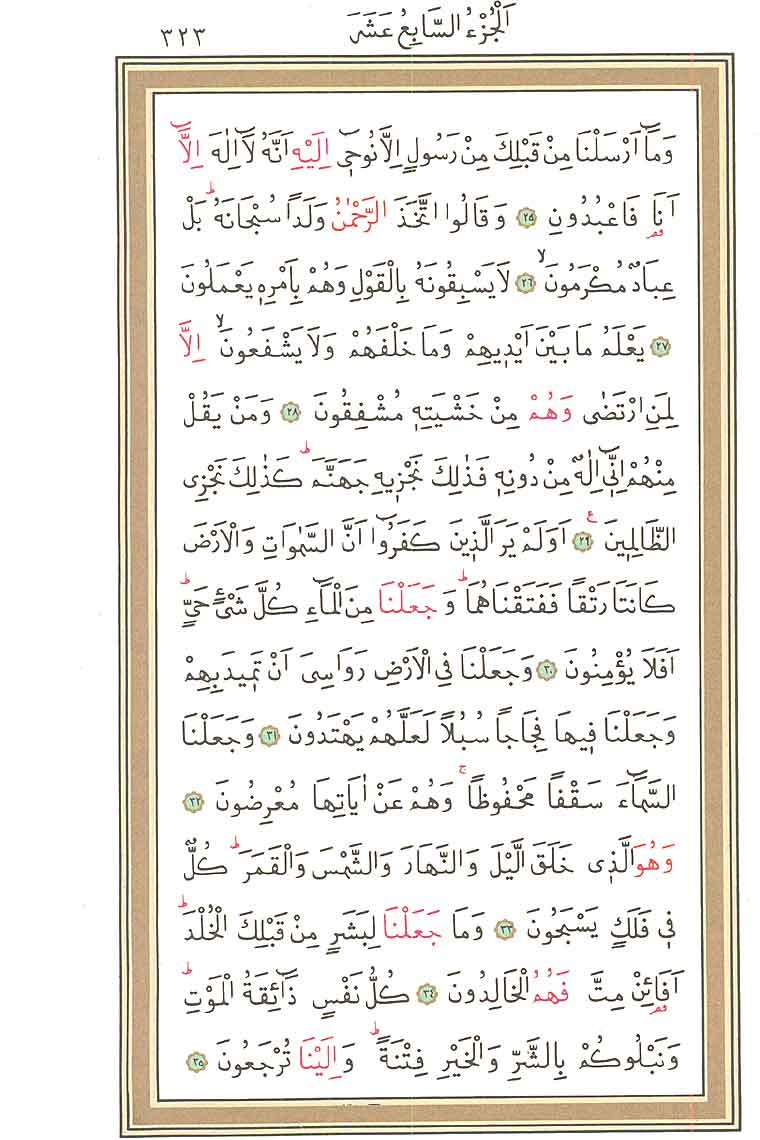 اَلْجُزْءُ السَّابِعُ عَشَرَ ٣٢٣
وَمَٓا اَرْسَلْنَا مِنْ قَبْلِكَ مِنْ رَسُولٍ اِلَّا نُوح۪ٓى اِلَيْهِ اَنَّهُ لَٓا اِلٰهَ اِلَّٓا
اَنَا۬ فَاعْبُدُونِ ﴿٢٥﴾ وَقَالُوا اتَّخَذَ الرَّحْمٰنُ وَلَدًا سُبْحَانَهُۜ بَلْ
عِبَادٌ مُكْرَمُونَۙ ﴿٢٦﴾ لَا يَسْبِقُونَهُ بِالْقَوْلِ وَهُمْ بِاَمْرِه۪ يَعْمَلُونَ
﴿٢٧﴾ يَعْلَمُ مَا بَيْنَ اَيْد۪يهِمْ وَمَا خَلْفَهُمْ وَلَا يَشْفَعُونَۙ اِلَّا
لِمَنِ ارْتَضٰى وَهُمْ مِنْ خَشْيَتِه۪ مُشْفِقُونَ ﴿٢٨﴾ وَمَنْ يَقُلْ
مِنْهُمْ اِنّ۪ٓى اِلٰهٌ مِنْ دُونِه۪ فَذٰلِكَ نَجْز۪يهِ جَهَنَّمَۜ كَذٰلِكَ نَجْزِى
الظَّالِم۪ينَ ﴿٢٩﴾ اَوَلَمْ يَرَ الَّذ۪ينَ كَفَرُٓوا اَنَّ السَّمٰوَاتِ وَالْاَرْضَ
كَانَتَا رَتْقًا فَفَتَقْنَاهُمَاۜ وَجَعَلْنَا مِنَ الْمَٓاءِ كُلَّ شَىْءٍ حَىٍّۜ
اَفَلَا يُؤْمِنُونَ ﴿٣٠﴾ وَجَعَلْنَا فِى الْاَرْضِ رَوَاسِىَ اَنْ تَم۪يدَ بِهِمْ
وَجَعَلْنَا ف۪يهَا فِجَاجًا سُبُلًا لَعَلَّهُمْ يَهْتَدُونَ ﴿٣١﴾ وَجَعَلْنَا
السَّمَٓاءَ سَقْفًا مَحْفُوظًاۚ وَهُمْ عَنْ اٰيَاتِهَا مُعْرِضُونَ ﴿٣٢﴾
وَهُوَ الَّذ۪ى خَلَقَ الَّيْلَ وَالنَّهَارَ وَالشَّمْسَ وَالْقَمَرَۜ كُلٌّ
ف۪ى فَلَكٍ يَسْبَحُونَ ﴿٣٣﴾ وَمَا جَعَلْنَا لِبَشَرٍ مِنْ قَبْلِكَ الْخُلْدَۜ
اَفَا۬ئِنْ مِتَّ فَهُمُ الْخَالِدُونَ ﴿٣٤﴾ كُلُّ نَفْسٍ ذَٓائِقَةُ الْمَوْتِۜ
وَنَبْلُوكُمْ بِالشَّرِّ وَالْخَيْرِ فِتْنَةًۜ وَاِلَيْنَا تُرْجَعُونَ ﴿٣٥﴾